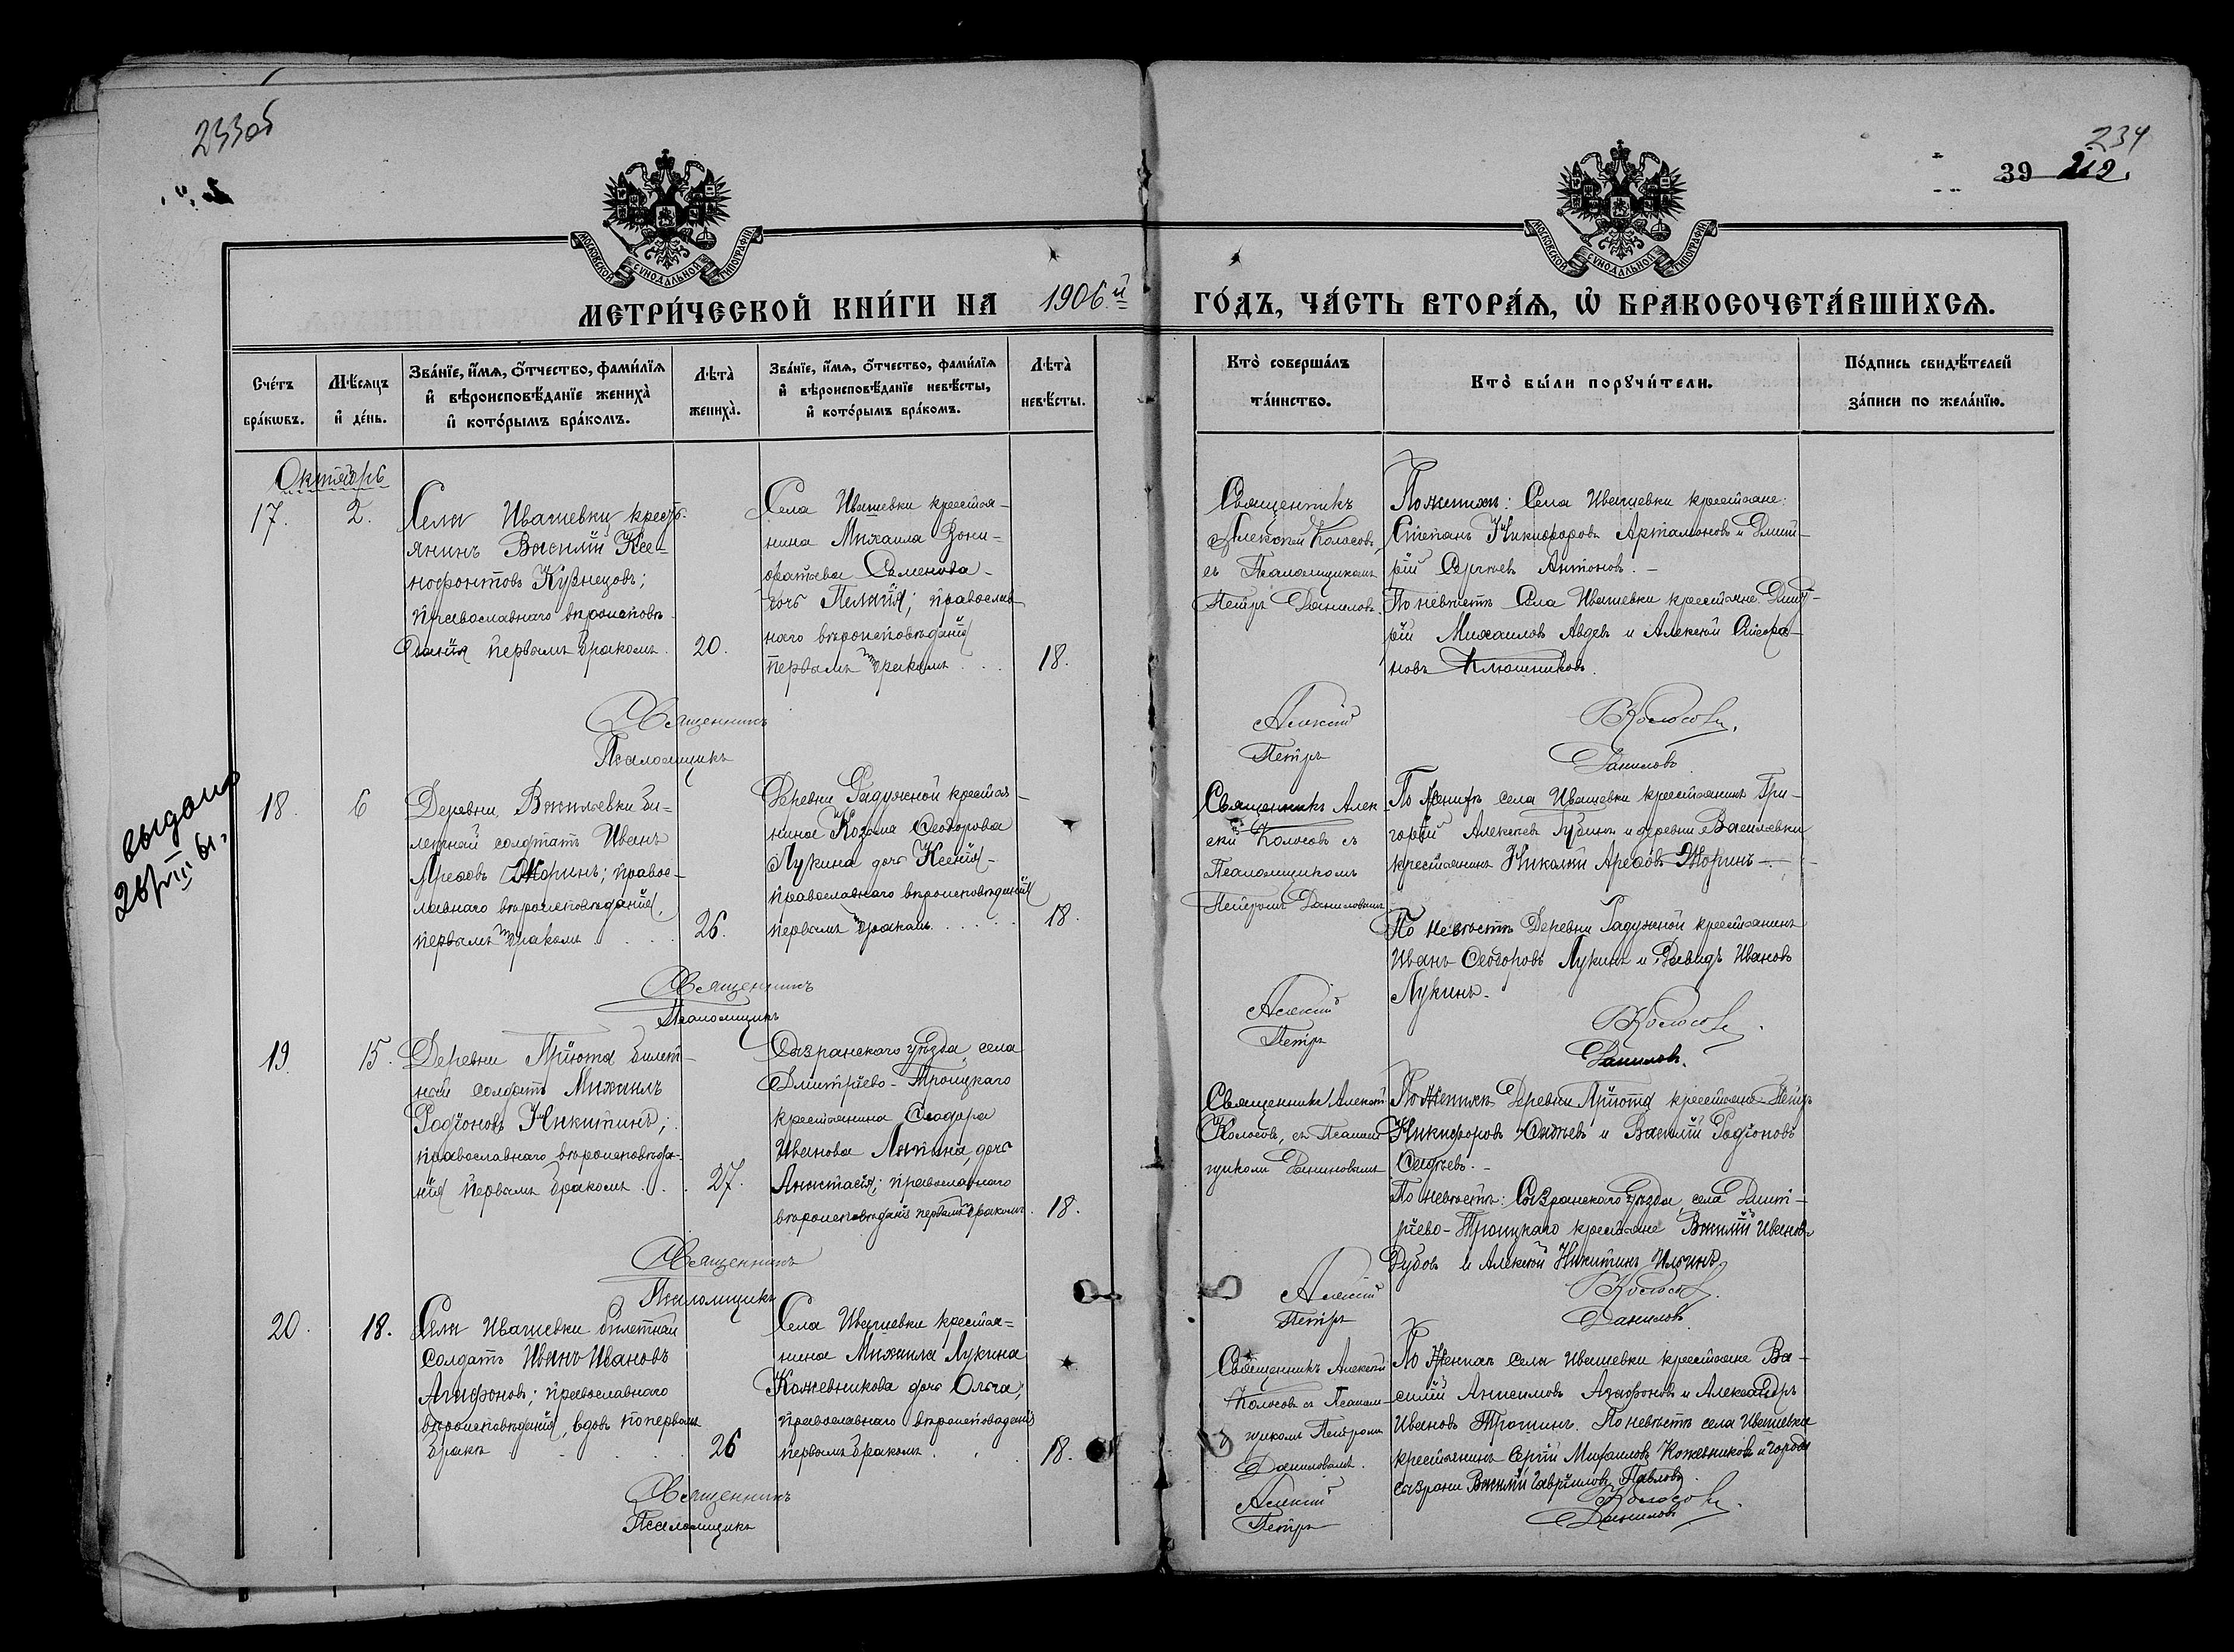 233об
234
39 212.
МОСКОВСКОЙ СѴНОДАЛЬНОЙ ТИПОГРАФІИ
МОСКОВСКОЙ СѴНОДАЛЬНОЙ ТИПОГРАФІИ
МЕТРИ́ЧЕСКОЙ КНИ́ГИ НА 1906й ГО́ДЪ, ЧА́СТЬ ВТОРА́Я, Ѡ БРАКОСОЧЕТА́ВШИХСЯ.
Сче́тъ бра́кѡвъ.
Мѣ́сяцъ и҆ де́нь.
Зва́нїе, и҆́мя, ѻ҆́тчество, фами́лїя
и҆ вѣроисповѣ́данїе жениха̀
и҆ кото́рымъ бра́комъ.
Лѣта̀ жениха̀.
Зва́нїе, и҆́мя, ѻ҆́тчество, фами́лїя
и҆ вѣроисповѣ́данїе невѣ́сты,
и҆ кото́рымъ бра́комъ.
Лѣта̀ невѣ́сты.
Кто̀ соверша́лъ та́инство.
Кто̀ бы́ли порꙋчи́тели.
По́дпись свидѣ́телей
за́писи по жела́нїю.
Октябрь
17.
2.
Села Ивашевки кресть-
янинъ Василій Ксе-
нофонтовъ Кузнецовъ;
православнаго вѣроисповѣ-
данія первымъ бракомъ.
20.
Села Ивашевки крестья-
нина Михаила
Семенова
дочь Пелагія; православ
наго вѣроисповѣданія
первымъ бракомъ . . .
18.
Священникъ
Алексѣй Колосовъ,
съ Псаломщикомъ
Петръ Даниловъ
По женихѣ: Села Ивашевки крестьяне:
Степанъ Никифоровъ Артамоновъ и Дмит-
рій Сергѣевъ Антоновъ. -
По невѣстѣ Села Ивашевки крестьяне Дмит-
рій Михаиловъ Авдевъ и Алексѣй Стефа-
новъ Клюшниковъ.
Священникъ Алексій Колосовъ.
Псаломщикъ Петръ Даниловъ
выдано
26/VII 61г.
18.
6
Деревни Васильевки би-
летной солдатъ Иванъ
Арефовъ Жоринъ; правос-
лавнаго вѣроисповѣданія,
первымъ бракомъ . . .
26.
Деревни Радужной крестья-
нина Козьма Ѳеодорова
Лукина дочь Ксенія -
православнаго вѣроисповѣданія
первымъ бракомъ . . . . .
18.
Священникъ Алек-
сѣй Колосовъ съ
Псаломщикомъ
Петромъ Даниловымъ
По женихѣ села Ивашевки крестьянинъ Гри-
горій Алексѣевъ Губинъ и деревни Васильевки
крестьянинъ Николай Арефовъ Жоринъ -
По невѣстѣ Деревни Радужной крестьянинъ
Иванъ Ѳеодоровъ Лукинъ и Давидъ Ивановъ
Лукинъ.
Священникъ Алексій Колосовъ.
Псаломщикъ Петръ Даниловъ.
19.
15.
Деревни Пріюта билет-
ной солдатъ Михаилъ
Родіоновъ Никитинъ;
православнаго вѣроисповѣда-
нія первымъ бракомъ . . .
27.
Сызранскаго уѣзда, села
Дмитріево-Троицкаго
крестьянина Ѳеодора
Иванова Лапина, дочь
Анастасія; православнаго
вѣроисповѣданія первымъ бракомъ.
18.
Священникъ Алексѣй
Колосовъ, съ Псалом-
щикомъ Даниловымъ
По женихѣ Деревни Пріюта крестьяне Петръ
Никифоровъ и Василій Родіоновъ
По невѣстѣ: Сызранскаго уѣзда, села Дмит-
ріево-Троицкаго крестьяне Василій Ивановъ
Дубовъ и Алексѣй Никитинъ Ильинъ.
Священникъ Алексій Колосовъ.
Псаломщикъ Петръ Даниловъ
20.
18.
Села Ивашевки билетной
солдатъ Иванъ Ивановъ
Агафоновъ; православнаго
вѣроисповѣданія, вдовъ по первомъ
бракѣ
26
Села Ивашевки крестья-
нина Михаила Лукина
Кожевникова дочь Ольга;
православнаго вѣроисповѣданія
первымъ бракомъ . . .
18.
Священникъ Алексѣй
Колосовъ съ Псалом-
щикомъ Петромъ
Даниловымъ.
По женихѣ села Ивашевки крестьяне Ва-
силій Анисимовъ Агафоновъ и Александръ
Ивановъ Трошинъ. По невѣстѣ села Ивашевки
крестьянинъ Сергій Михаиловъ Кожевниковъ и города
Сызрани Василій Гавріиловъ Павловъ.
Священникъ Алексій Колосовъ.
Псаломщикъ Петръ Даниловъ